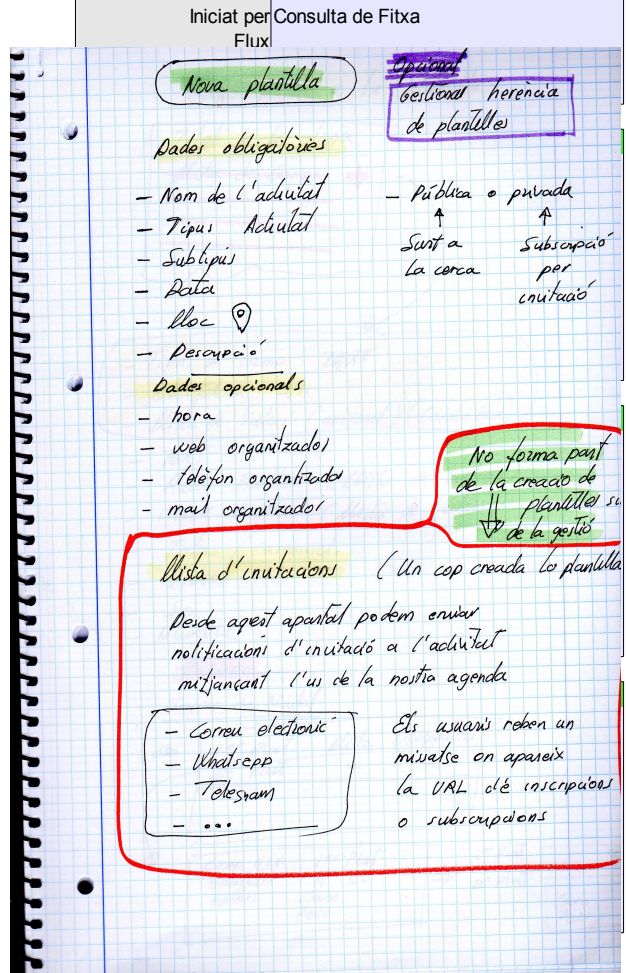 Iniciat per Consulta de Fitxa
Flux
Nova plantilla
Opcional
Gestionar herència
de plantilles
Dades obligatòries
- Nom de l'activitat
- Tipus Activitat
- Subtipus
- Data
- lloc
- Descripció
- Pública o privada
Surt a
la cerca
Subscripció
per
invitació
Dades opcionals
- hora
- web organitzador
- telèfon organitzador
- mail organitzador
No forma part
de la creació de
plantilles
de la gestió
Llista d'invitacions (Un cop creada la plantilla
Desde aquest apartat podem enviar
notificacions d'invitació a l'activitat
mitjançant l'us de la nostra agenda
- Correu electronic
- Whatsapp
- Telegram
- ...
Els usuaris reben un
missatge on apareix
la URL d'inscripcions
o subscripcions